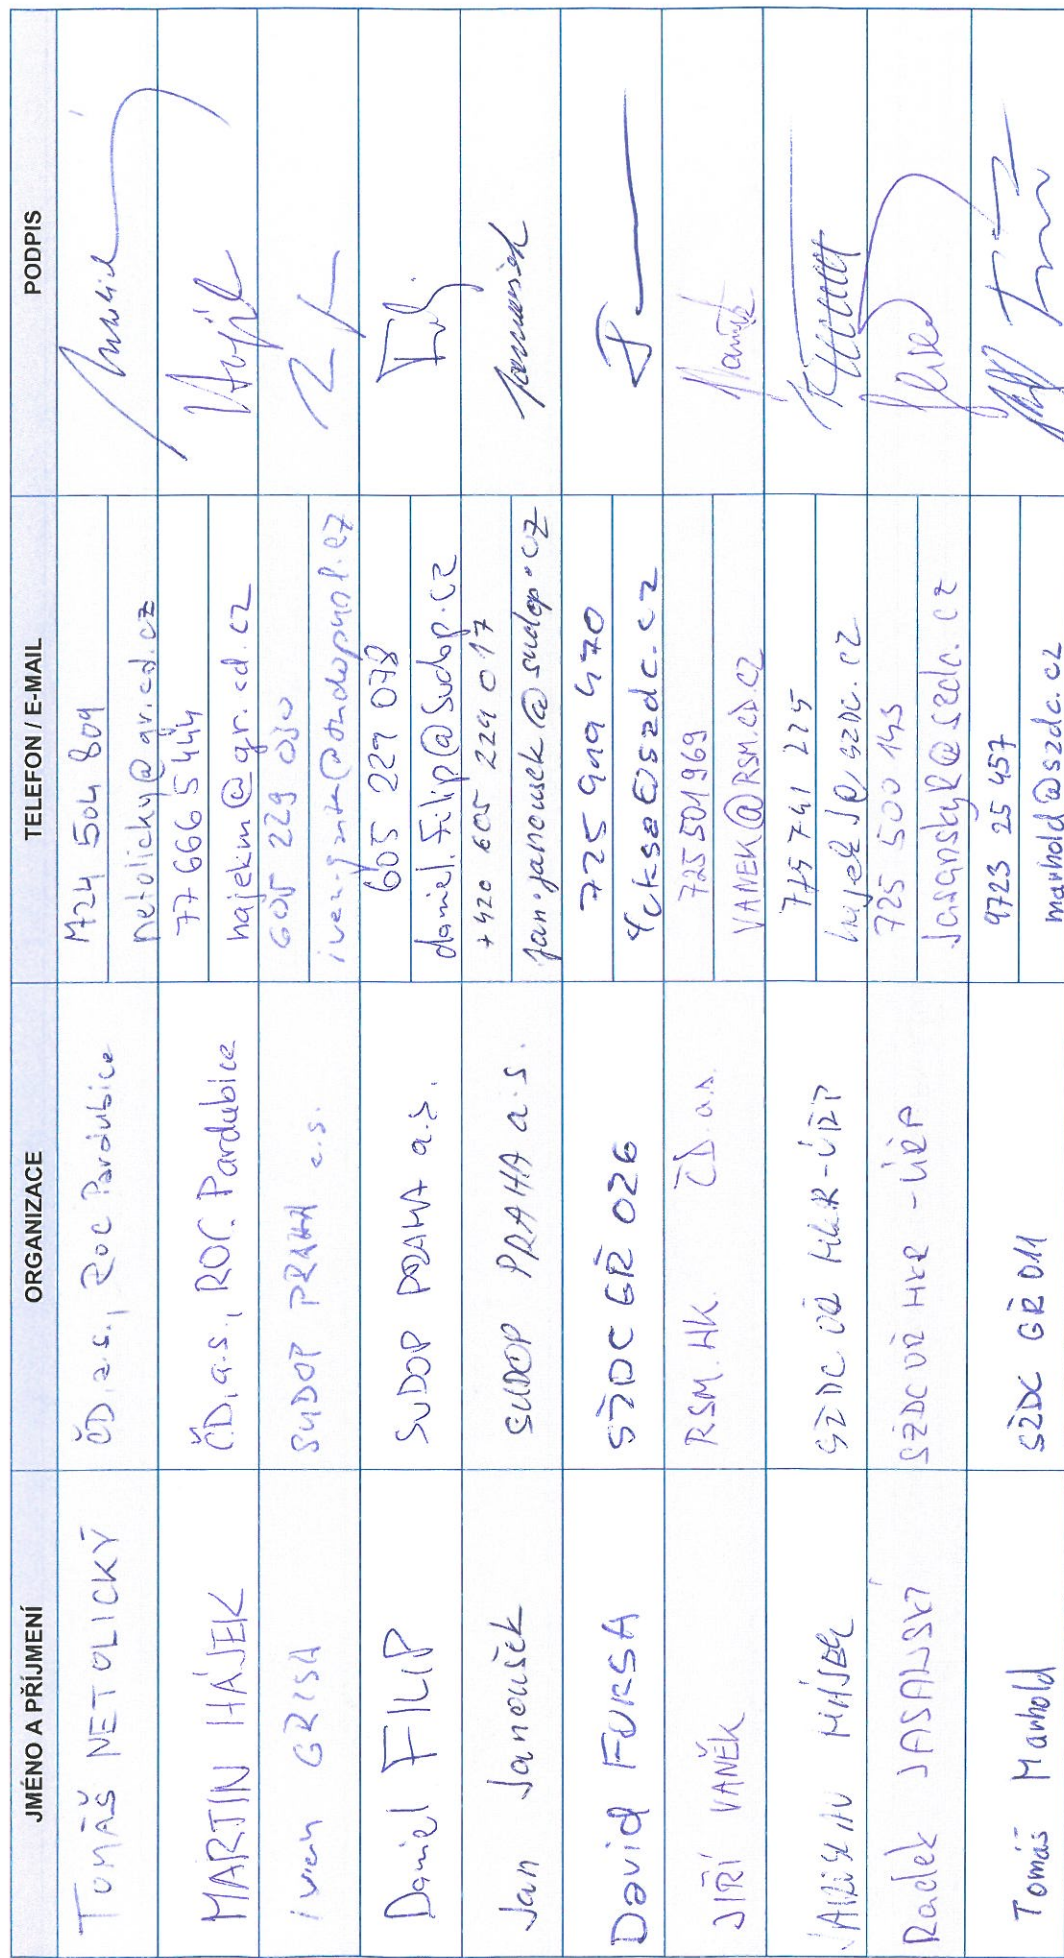 JMÉNO A PŘÍJMENÍ ORGANIZACE TELEFON / E-MAIL PODPIS
TOMÁŠ NETOLICKÝ ČD, a.s., ROC Pardubice M724 504 809
netolicky@gr.cd.cz
MARTIN HÁJEK ČD, a.s., ROC Pardubice 77 666 5 444
hajekm@gr.cd.cz
Ivan SUDOP PRAHA a.s. 605 229 030
Daniel FILIP SUDOP PRAHA a.s. 605 229 078
daniel.filip@sudop.cz
Jan Janoušek SUDOP PRAHA a.s. +420 605 229 017
jan.janousek@sudop.cz
David FUKSA SŽDC GŘ 026 725 949 470
JIŘÍ VANĚK RSM HK ČD a.s. 725 501 969
VANEK@RSM.CD.CZ
HÁJEK SŽDC 775 741 225
Radek JASANSKÝ SŽDC 725 500 143
Jasansky@szdc.cz
Tomáš Manhold SŽDC GŘ 011 9723 25 457
manhold@szdc.cz